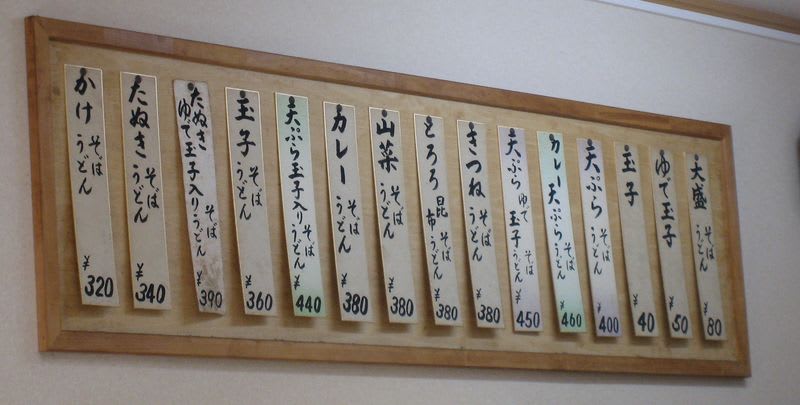 かけ そば うどん ¥320
たぬき そば うどん ¥340
たぬき ゆで玉子入り そば うどん ¥390
玉子 そば うどん ¥360
天ぷら玉子入り そば うどん ¥440
カレー そば うどん ¥380
山菜 そば うどん ¥380
とろろ昆布 そば うどん ¥380
きつね そば うどん ¥380
天ぷら ゆで玉子 そば うどん ¥450
カレー天ぷら そば うどん ¥460
天ぷら そば うどん ¥400
玉子 ¥40
ゆで玉子 ¥50
大盛 そば うどん ¥80